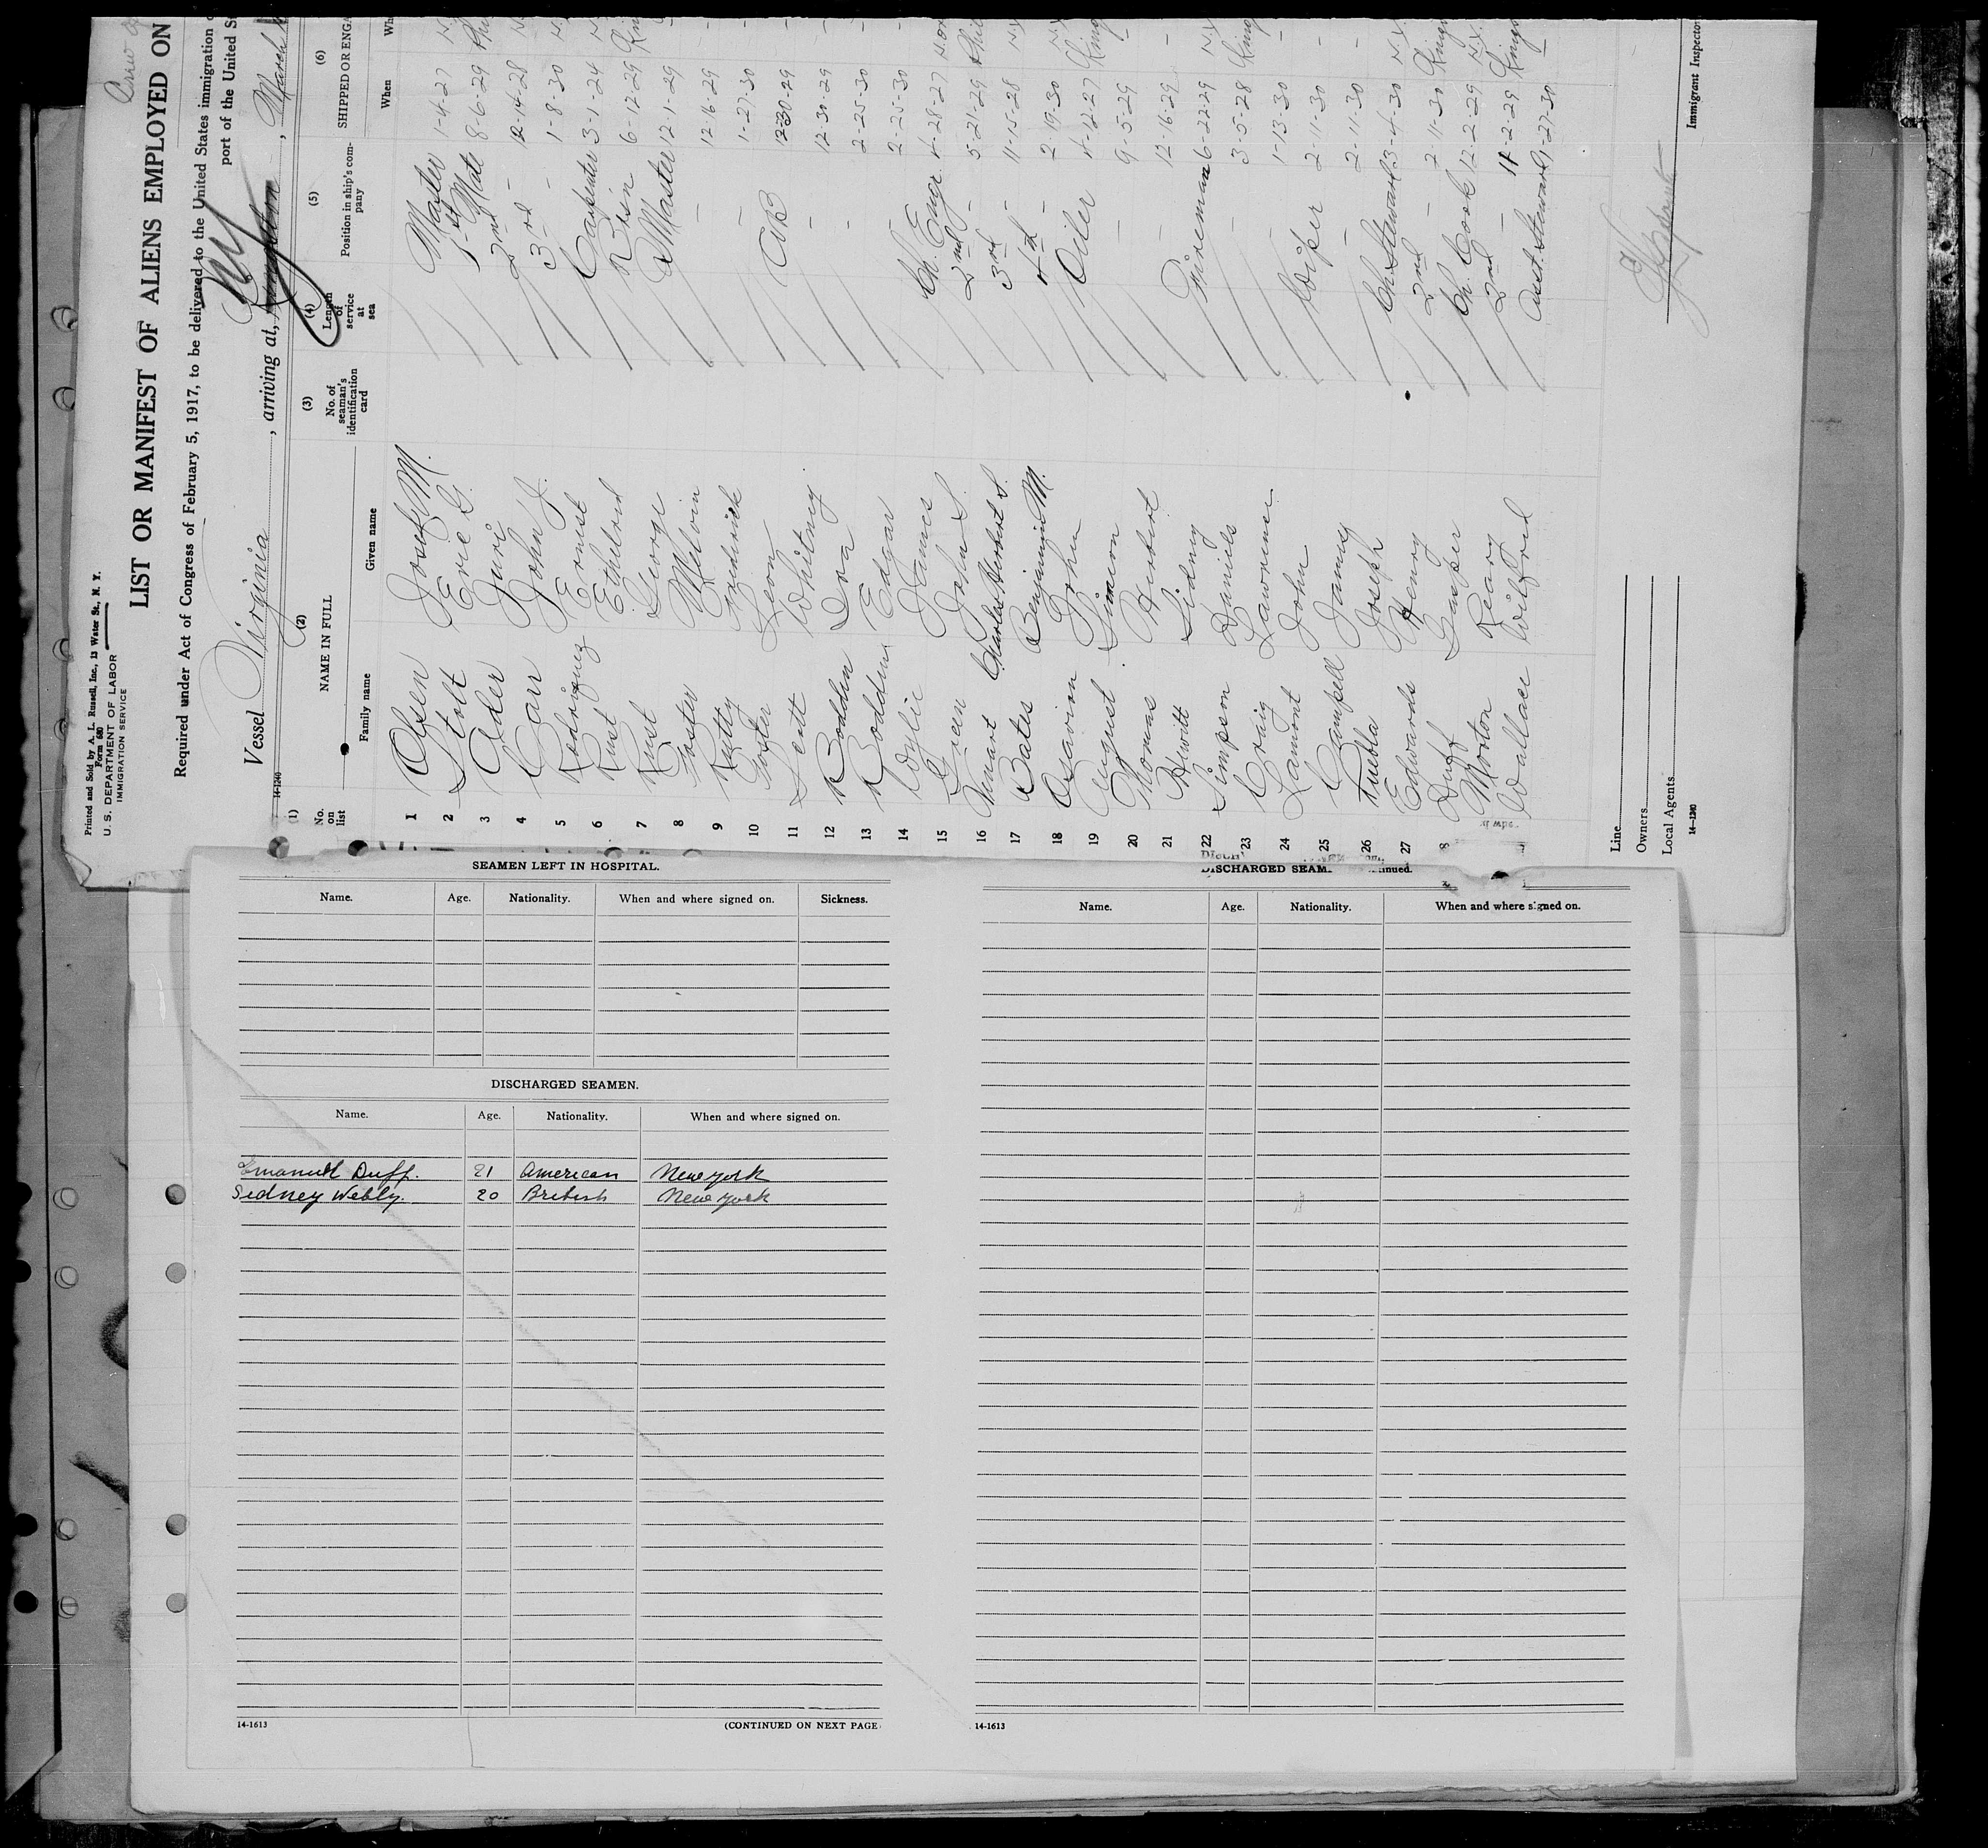 Printed and Sold by A. L. Russell, Inc., 13 Water St., N. Y.
Form 680
U. S. DEPARTMENT OF LABOR
IMMIGRATION SERVICE
LIST OR MANIFEST OF ALIENS EMPLOYED ON
Required under Act of Congress of February 5, 1917, to be delivered to the United States immigration
port of the United
Vessel Virginia, arriving at, NY, March
14-1240
(1) (2) (3) (4) (5) (6)
No. on list NAME IN FULL No. of seaman's identification card Length of service at sea Position in ship's company SHIPPED OR ENGA
Family name Given name When
1 Olsen Josef M. Master 1-4-27
2 Stolt Eric G. 1st Mate 8-6-29
3 Ader Juri 2nd - 12-14-28
4 Carr John J. 3rd - 1-8-30
5 Rodriguez Ernest Carpenter 3-1-24
6 Rust Ethelred Bsin 6-12-29
7 Rust George QMaster 12-1-29
8 Foster Melvin - 12-16-29
9 Rutty Frederick - 1-27-30
10 Foster Leon AB 12-30-29
11 Scott Whitney - 12-30-29
12 Bodden Ira - 2-25-30
13 Bodden Edgar 2-25-30
14 Wylie James Ch. Engr. 4-28-27
15 Green John S. 2nd 5-21-29
16 Charles Herbert S. 3rd - 11-15-28
17 Bates Benjamin M. 4th - 2-19-30
18 John Oiler 4-12-27
19 August Simeon - 9-5-29
20 Thomas Herbert - 12-16-29
21 Hewitt Sidney Fireman 6-22-29
22 Simpson Daniels - 3-5-28
23 Craig Lawrence - 1-13-30
24 Lamont John Wiper 2-11-30
25 Campbell James - 2-11-30
26 Puebla Joseph Ch. Steward 3-4-30
27 Edwards Henry 2nd - 2-11-30
Duff Ch. Cook 12-2-29
Morton 2nd - 11-2-29
Wallace Wilfred Asst. Steward 1-27-30
Line
Owners
Local Agents
14-1240
Immigrant Inspector
SEAMEN LEFT IN HOSPITAL.
Name. Age. Nationality. When and where signed on. Sickness.
DISCHARGED SEAMEN.
Name. Age. Nationality. When and where signed on.
Emanuel Duff. 21 American New York
Sidney Webly. 20 British New York
14-1613 (CONTINUED ON NEXT PAGE
DISCHARGED SEAM inued.
Name. Age. Nationality. When and where signed on.
14-1613